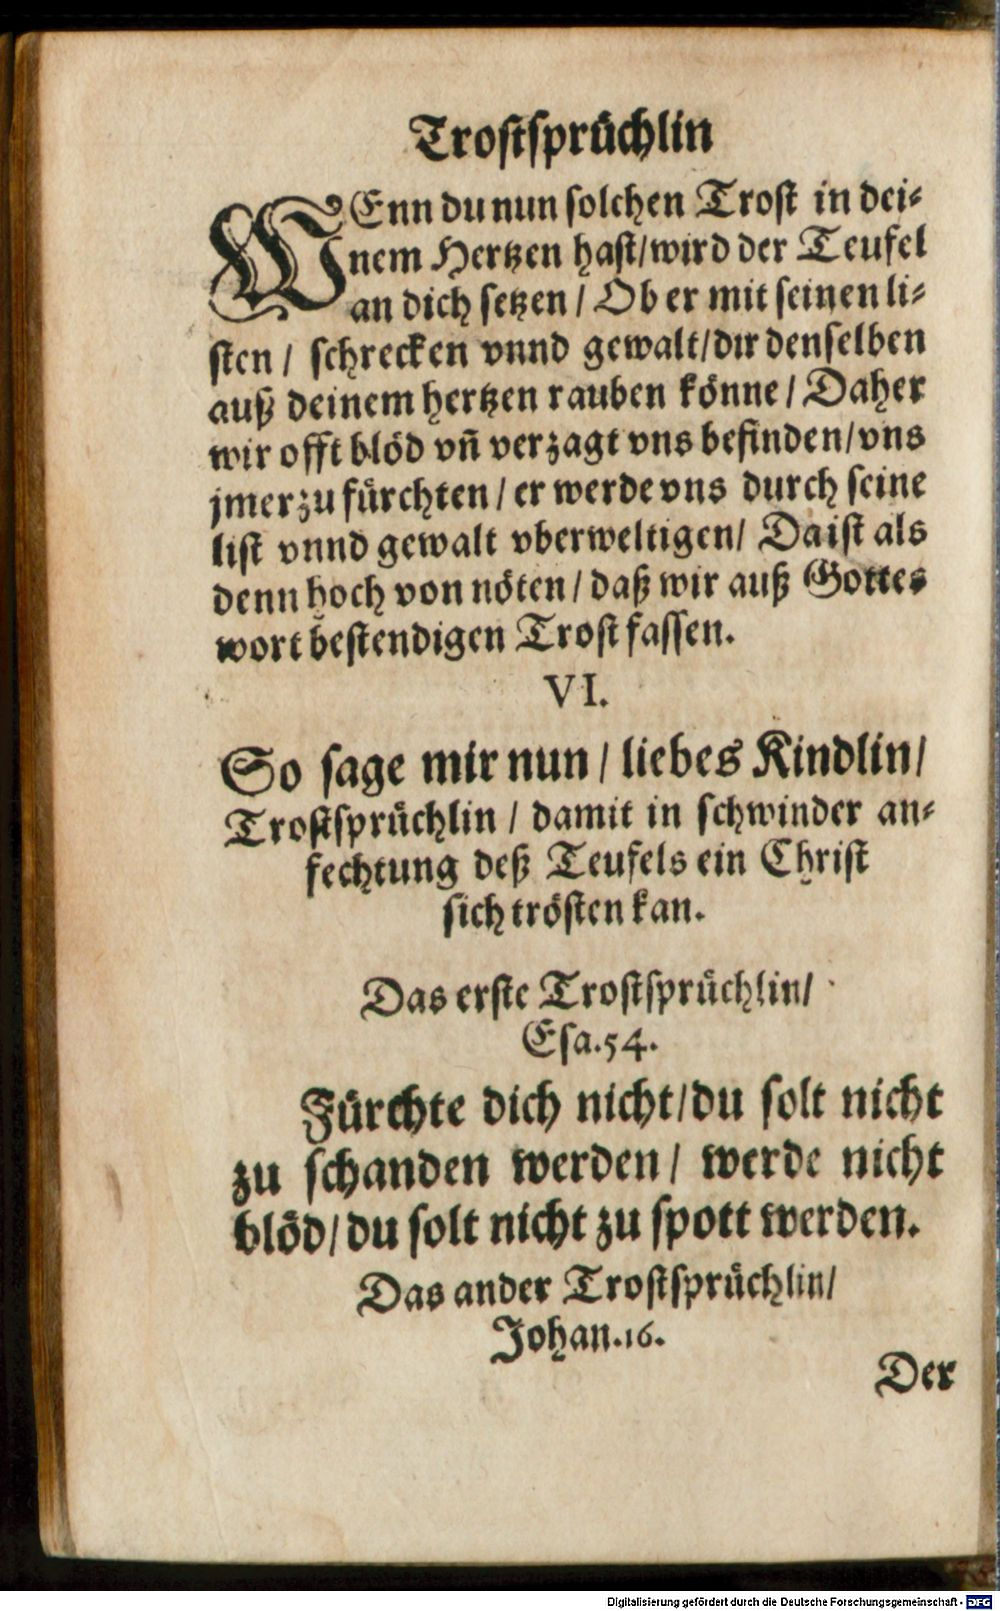 Trostsprüchlin
WEnn du nun solchen Trost in dei-
nem Hertzen hast/ wird der Teufel
an dich setzen / Ob er mit seinen li-
sten / schrecken vnnd gewalt/ dir denselben
auß deinem hertzen rauben könne / Daher
wir offt blöd vñ verzagt vns befinden/ vns
jmerzu fürchten / er werde vns durch seine
list vnnd gewalt vberweltigen/ Da ist als
denn hoch von nöten / daß wir auß Gottes
wort bestendigen Trost fassen.
VI.
So sage mir nun / liebes Kindlin/
Trostsprüchlin / damit in schwinder an-
fechtung deß Teufels ein Christ
sich trösten kan.
Das erste Trostsprüchlin/
Esa.54.
Fürchte dich nicht/ du solt nicht
zu schanden werden/ werde nicht
blöd/ du solt nicht zu spott werden.
Das ander Trostsprüchlin/
Johan.16.
Der
Digitalisierung gefördert durch die Deutsche Forschungsgemeinschaft - DFG